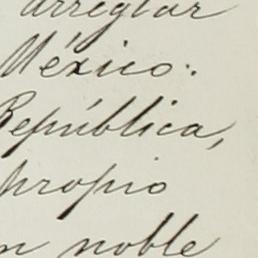 arreglar
México:
República,
propio
noble